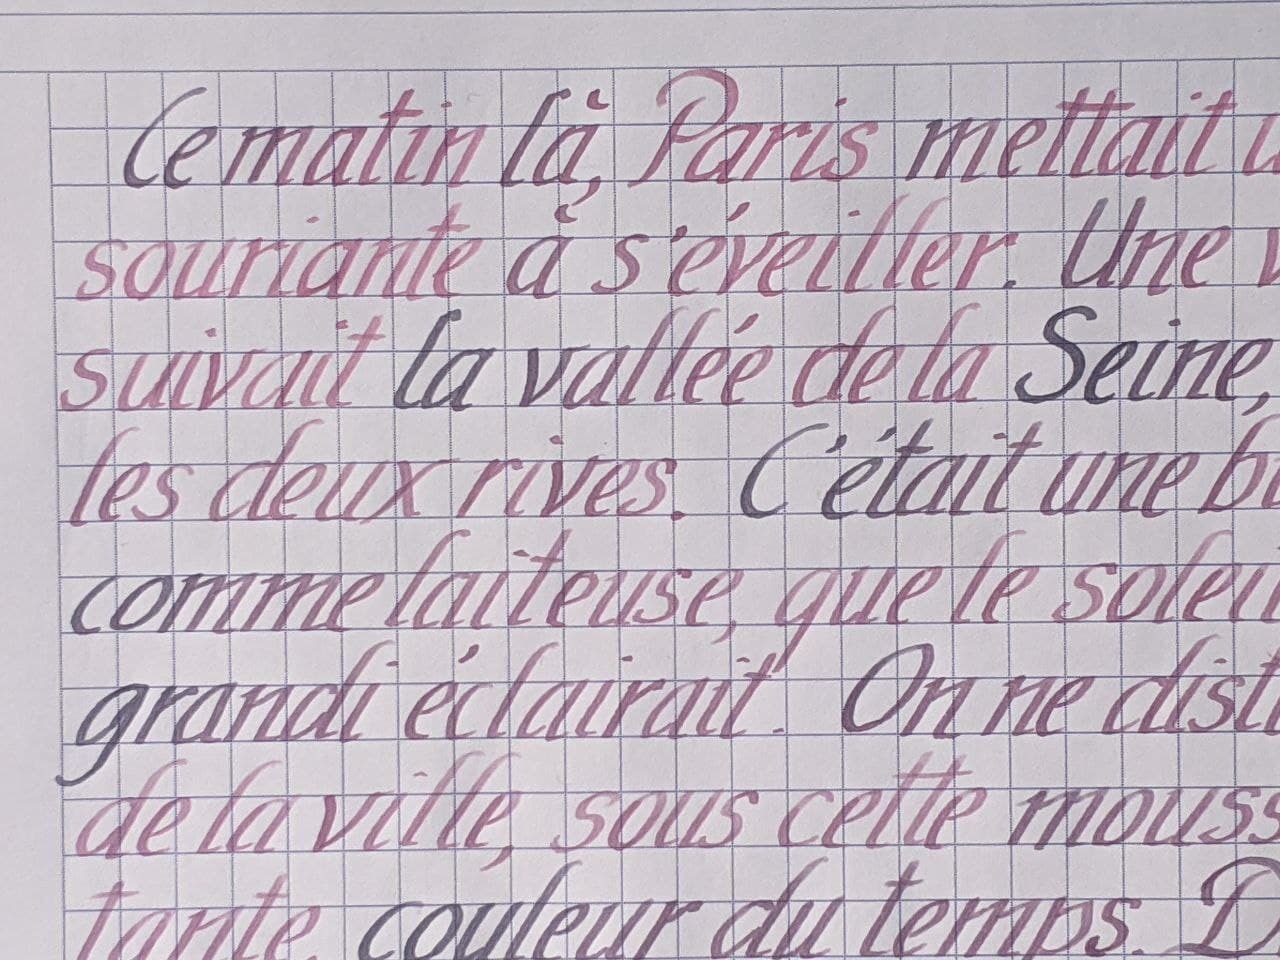 Ce matin là, Paris mettait u
souriante à s'éveiller. Une v
suivait la vallée de la Seine,
les deux rives. C'était une bu
comme laiteuse, que le soleil
grandi éclairait. On ne dist
de la ville, sous cette mouss
tante, couleur du temps. D